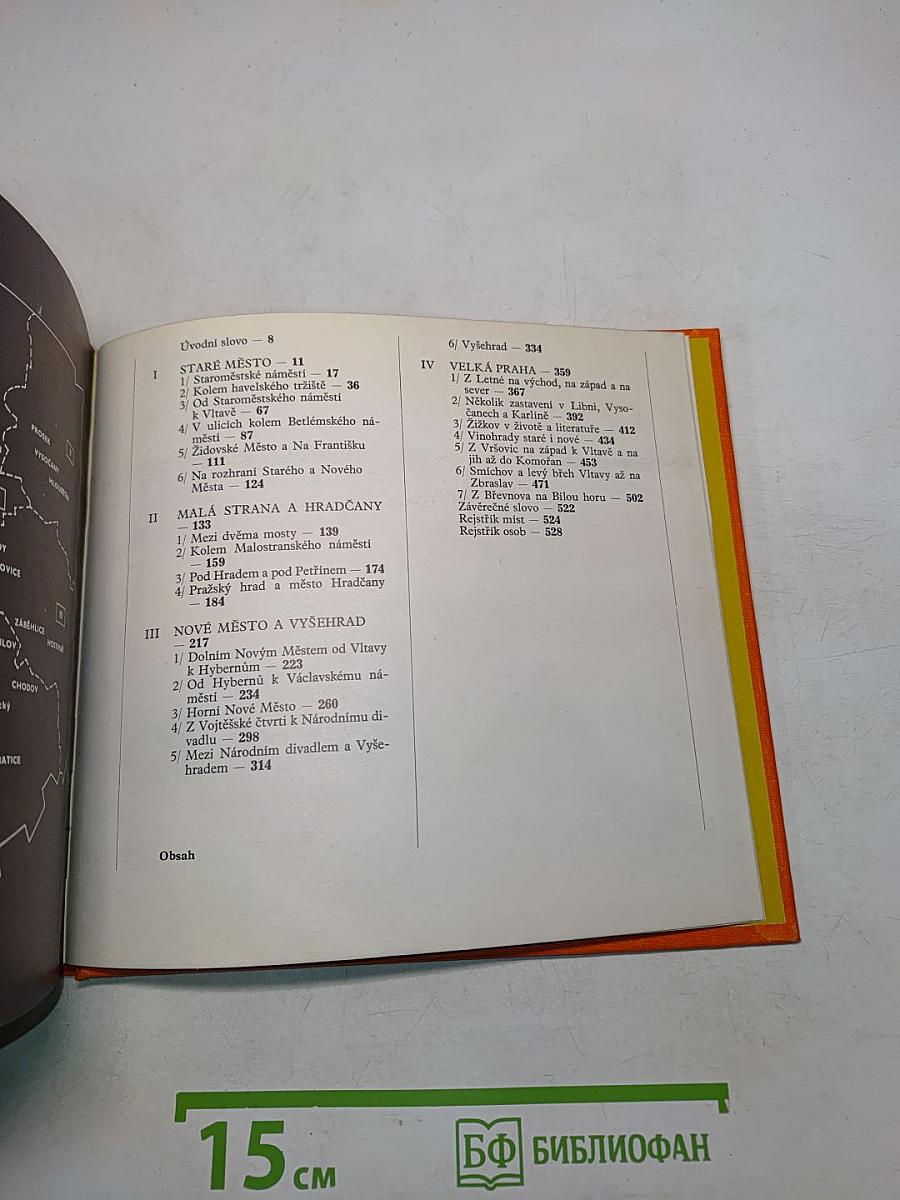 PROSEK
VYSOČANY
ZÁBĚHLICE
CHODOV
Úvodní slovo — 8
I STARÉ MĚSTO — 11
1/ Staroměstské náměstí — 17
2/ Kolem havelského tržiště — 36
3/ Od Staroměstského náměstí
k Vltavě — 67
4/ V ulicích kolem Betlémského ná-
městí — 87
5/ Židovské Město a Na Františku
— 111
6/ Na rozhraní Starého a Nového
Města — 124
II MALÁ STRANA A HRADČANY
— 133
1/ Mezi dvěma mosty — 139
2/ Kolem Malostranského náměstí
— 159
3/ Pod Hradem a pod Petřínem — 174
4/ Pražský hrad a město Hradčany
— 184
III NOVÉ MĚSTO A VYŠEHRAD
— 217
1/ Dolním Novým Městem od Vltavy
k Hybernům — 223
2/ Od Hybernů k Václavskému ná-
městí — 234
3/ Horní Nové Město — 260
4/ Z Vojtěšské čtvrti k Národnímu di-
vadlu — 298
5/ Mezi Národním divadlem a Vyše-
hradem — 314
Obsah
6/ Vyšehrad — 334
IV VELKÁ PRAHA — 359
1/ Z Letné na východ, na západ a na
sever — 367
2/ Několik zastavení v Libni, Vyso-
čanech a Karlíně — 392
3/ Žižkov v životě a literatuře — 412
4/ Vinohrady staré i nové — 434
5/ Z Vršovic na západ k Vltavě a na
jih až do Komořan — 453
6/ Smíchov a levý břeh Vltavy až na
Zbraslav — 471
7/ Z Břevnova na Bílou horu — 502
Závěrečné slovo — 522
Rejstřík míst — 524
Rejstřík osob — 528
15 см
БФ БИБЛИОФАН